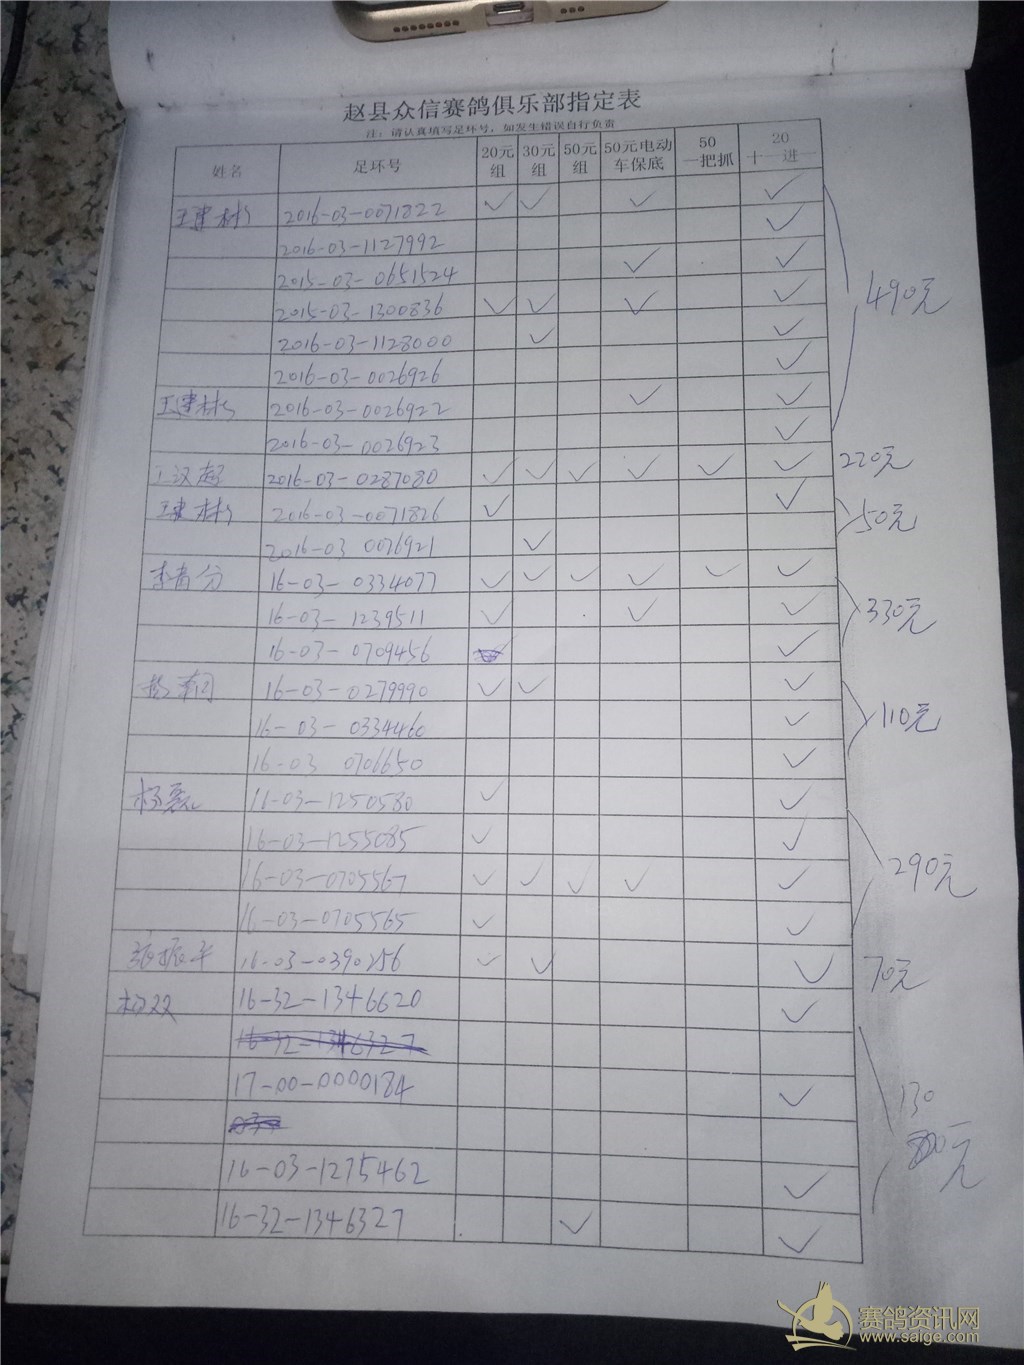 赵县众信赛鸽俱乐部指定表
注：请认真填写足环号，如发生错误自行负责
姓名 足环号 20元组 30元组 50元组 50元电动车保底 50一把抓 20十一进一
王建材 2016-03-0071822 ✓ ✓ ✓ ✓
2016-03-1127992 ✓
2015-03-0651524 ✓ ✓
2015-03-1300836 ✓ ✓ ✓ ✓
2016-03-1128000 ✓ ✓
2016-03-0026926 ✓
490元
王建材 2016-03-0026922 ✓ ✓
2016-03-0026923 ✓
王汉超 2016-03-0287080 ✓ ✓ ✓ ✓ ✓ ✓ 220元
王建材 2016-03-0071826 ✓ ✓
2016-03 0076921 ✓
50元
李青分 16-03-0334077 ✓ ✓ ✓ ✓ ✓ ✓
16-03-1239511 ✓ ✓ ✓
16-03-0709456 ✓
330元
16-03-0279990 ✓ ✓ ✓
16-03-0334460 ✓
16-03 0706650 ✓
110元
16-03-1250580 ✓ ✓
16-03-1255085 ✓ ✓
16-03-0705567 ✓ ✓ ✓ ✓ ✓
16-03-0705565 ✓ ✓
290元
张振平 16-03-0390256 ✓ ✓ ✓ 70元
杨双 16-32-1346620 ✓
16-32-1346327
17-00-0000184 ✓
130
16-03-1275462 ✓
元
16-32-1346327 ✓ ✓
赛鸽资讯网
www.saige.com